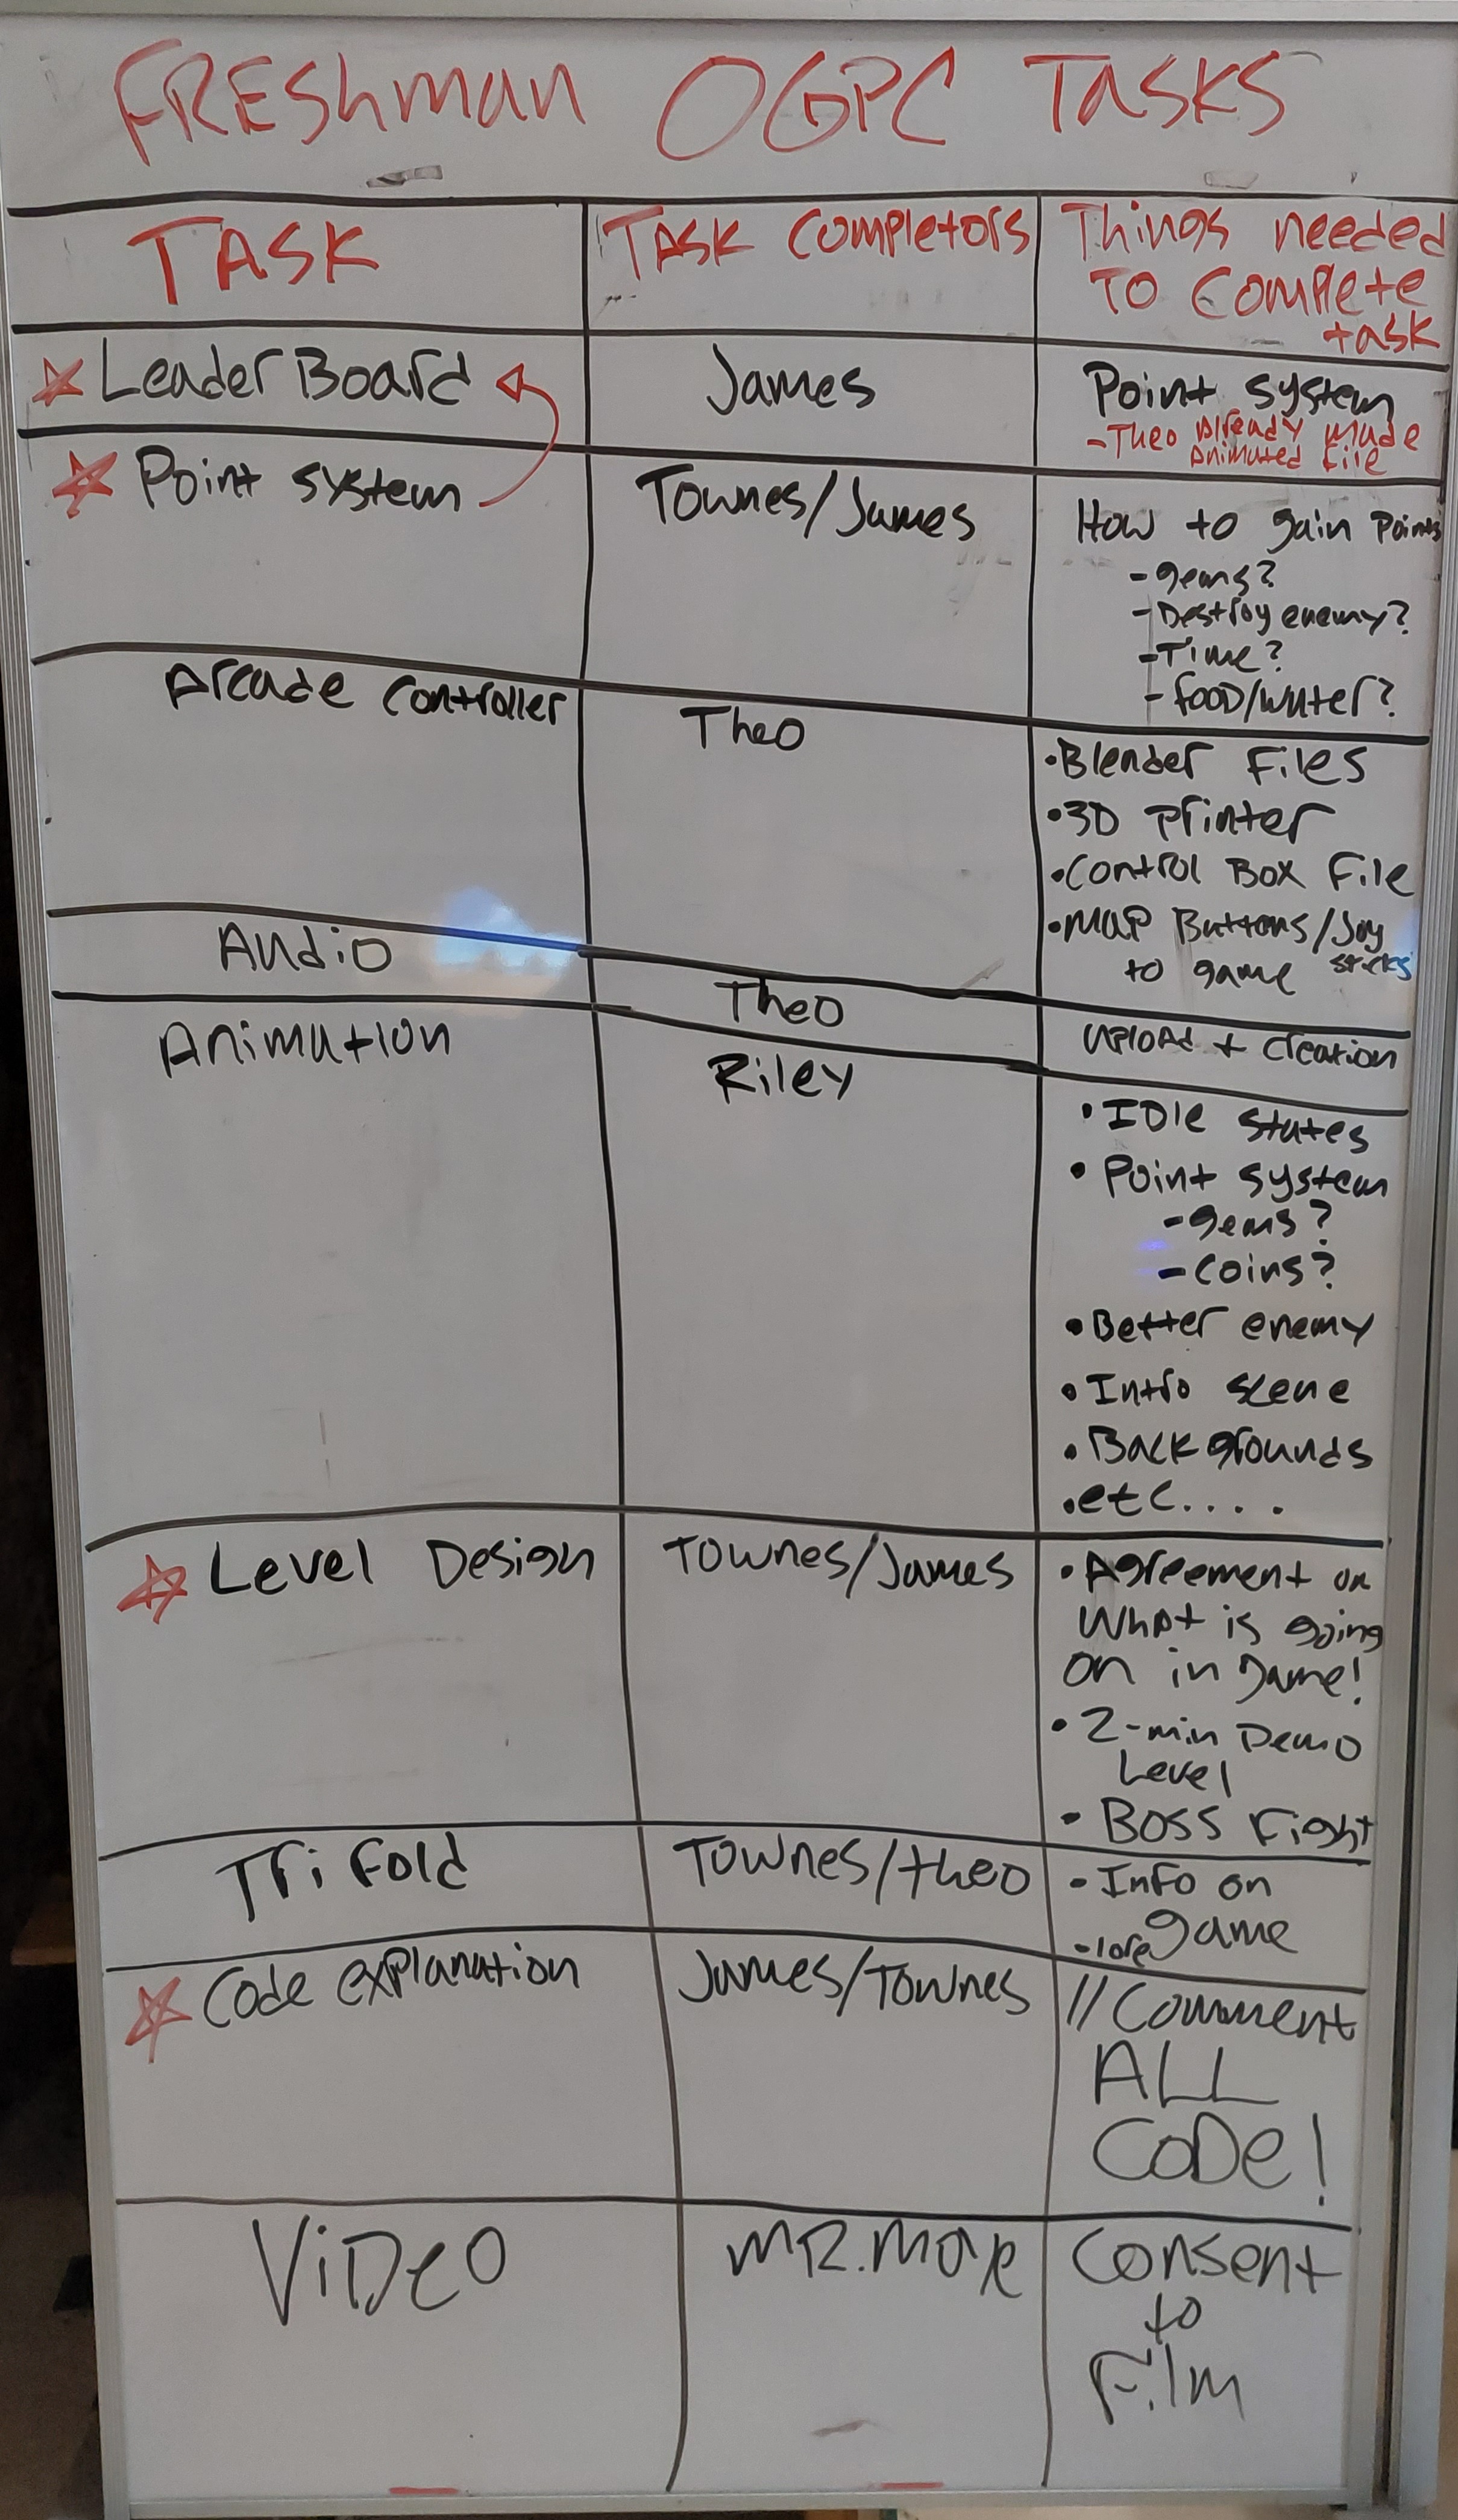 FREshman OGPC TASKS
TASK
TASK Completors
Things needed
TO Complete
task
Leader Board
James
Point system
-Theo Already made
Animated File
Point system
Townes/James
How to gain Points
-gems?
-Destroy enemy?
-Time?
-FOOD/water?
Arcade Controller
Theo
•Blender Files
•3D Printer
•Control Box File
•MAP Buttons/Joy
sticks
to game
Audio
Theo
Upload + Creation
Animation
Riley
•IDle states
•Point system
-gems?
-Coins?
•Better enemy
•Intro scene
•Backgrounds
•etc....
Level Design
Townes/James
•Agreement on
What is going
on in game!
•2-min Demo
Level
•BOSS Fight
Tri Fold
Townes/theo
•Info on
game
-lore
Code explanation
James/Townes
//Comment
ALL
CODe!
ViDeo
MR.
Consent
to
Film